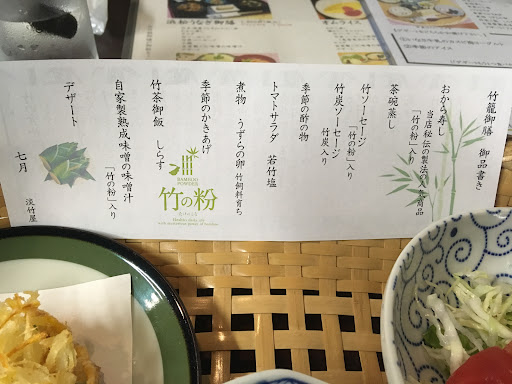 竹籠御膳 御品書き
おから寿し
当店秘伝の製法の人気商品
「竹の粉」入り
茶碗蒸し
竹ソーセージ 「竹の粉」入り
竹炭ソーセージ 竹炭入り
季節の酢の物
トマトサラダ 若竹塩
煮物 うずらの卵 竹飼料育ち
季節のかきあげ
竹茶御飯 しらす
自家製熟成味噌の味噌汁
「竹の粉」入り
デザート
七月 淡竹屋
BAMBOO POWDER
竹の粉